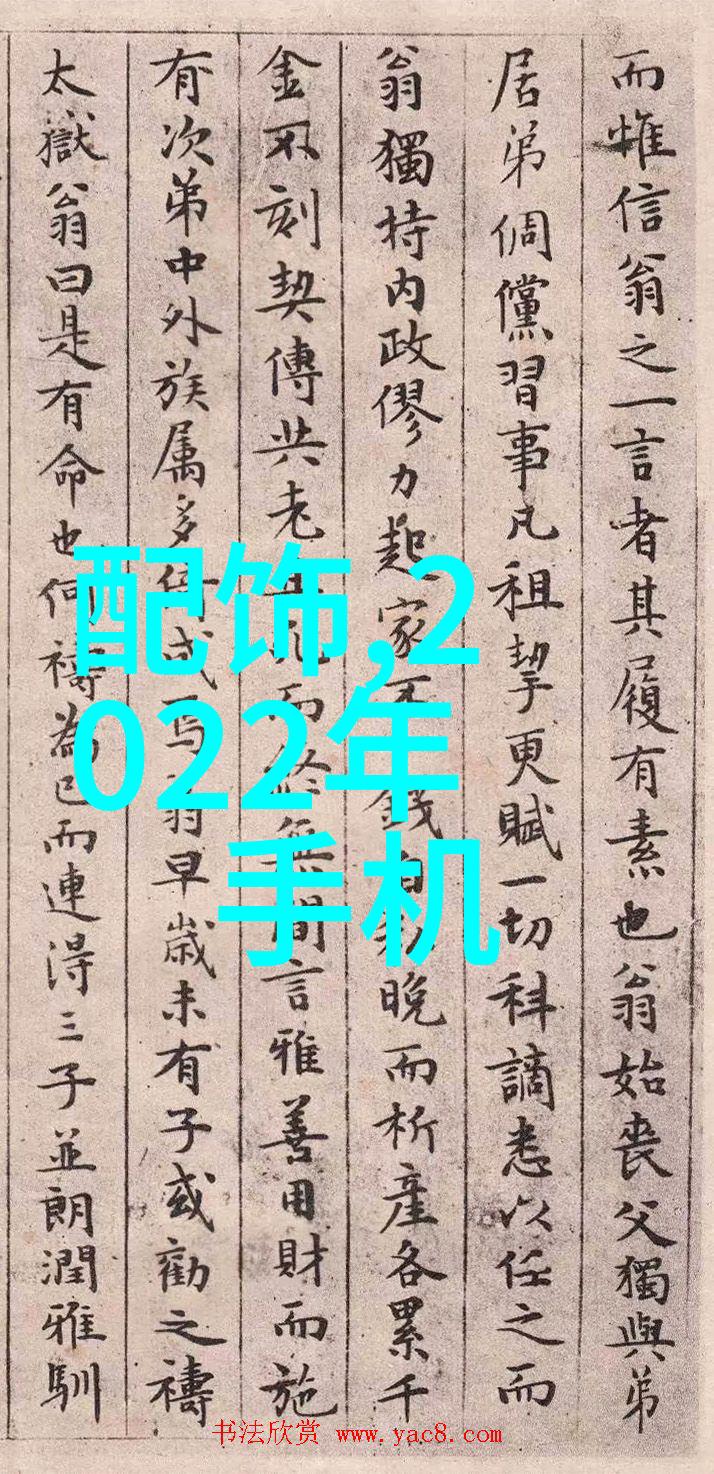 而惟信翁之一言者其履有素也翁始喪父獨與弟
居弟倜儻習事凡租挈更賦一切科謫悉以任之而
翁獨持内政僇力起家不錢自私晚而析產各累千
金不刻契傳共老且死而終無間言雅善用財而施
有次第中外族属多倚成焉翁早歲未有子或勸之禱
太嶽翁曰是有命也何禱為已而連得三子並朗潤雅馴
配饰,2
022年
手机
书法欣赏 www.yac8.com